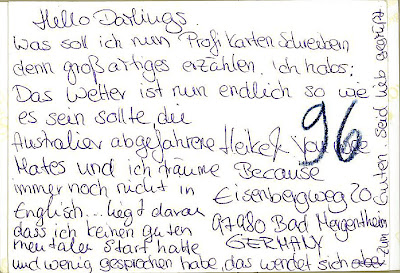 Hello Darlings.
Was soll ich nun Profi Karten Schreibern
denn großartiges erzählen. Ich habs:
Das Wetter ist nun endlich so wie
es sein sollte, die
Australier abgefahrene
Mates und ich träume
immer noch nicht in
English... liegt daran
dass ich keinen guten
mentalen Start hatte
und wenig gesprochen habe, das wendet sich aber
zum Guten. Seid lieb gegrüßt
Heike &
Because
Eisenbergweg 20
97980 Bad Mergentheim
GERMANY
96